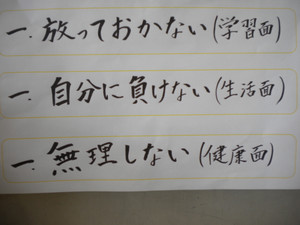 一. 放っておかない(学習面)
一. 自分に負けない(生活面)
一. 無理しない(健康面)